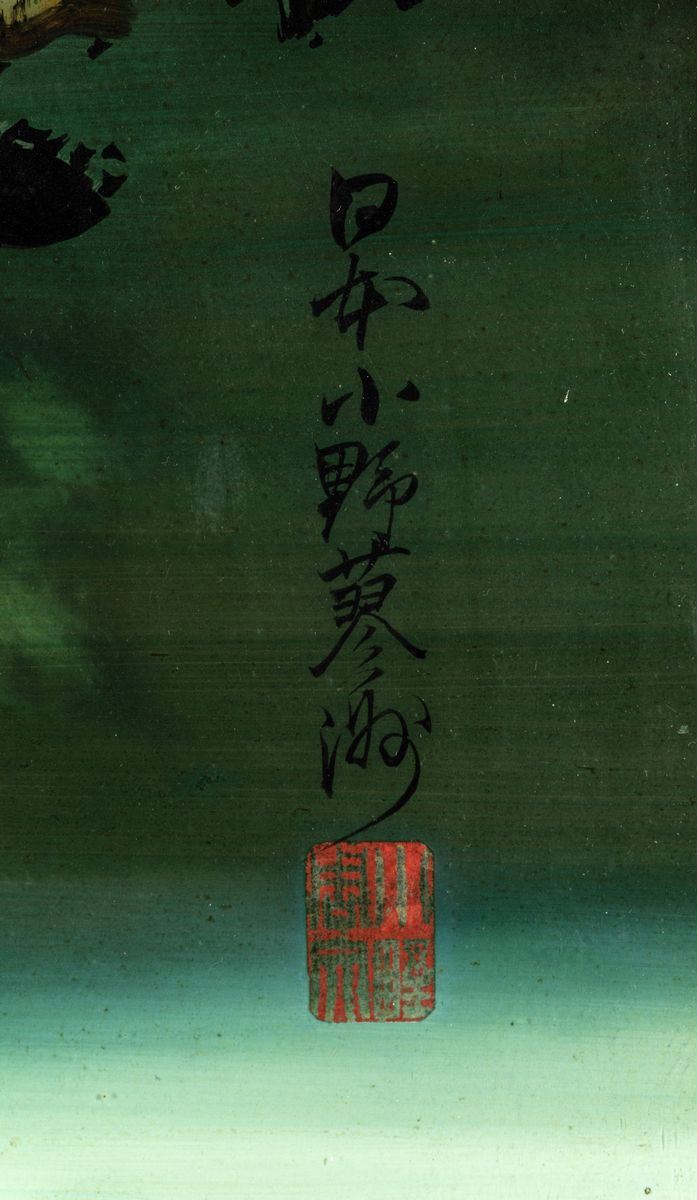 日本小野蓼洲